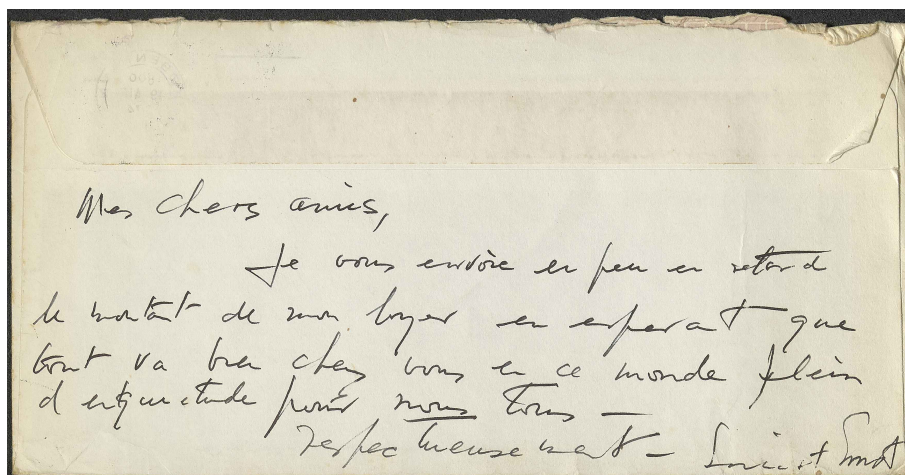 Mes chers amis,
Je vous envoie en peu en retard
le montant de mon loyer en esperant que
tout va bien chez vous en ce monde plein
d'inquietude pour nous tous —
respectueusement —